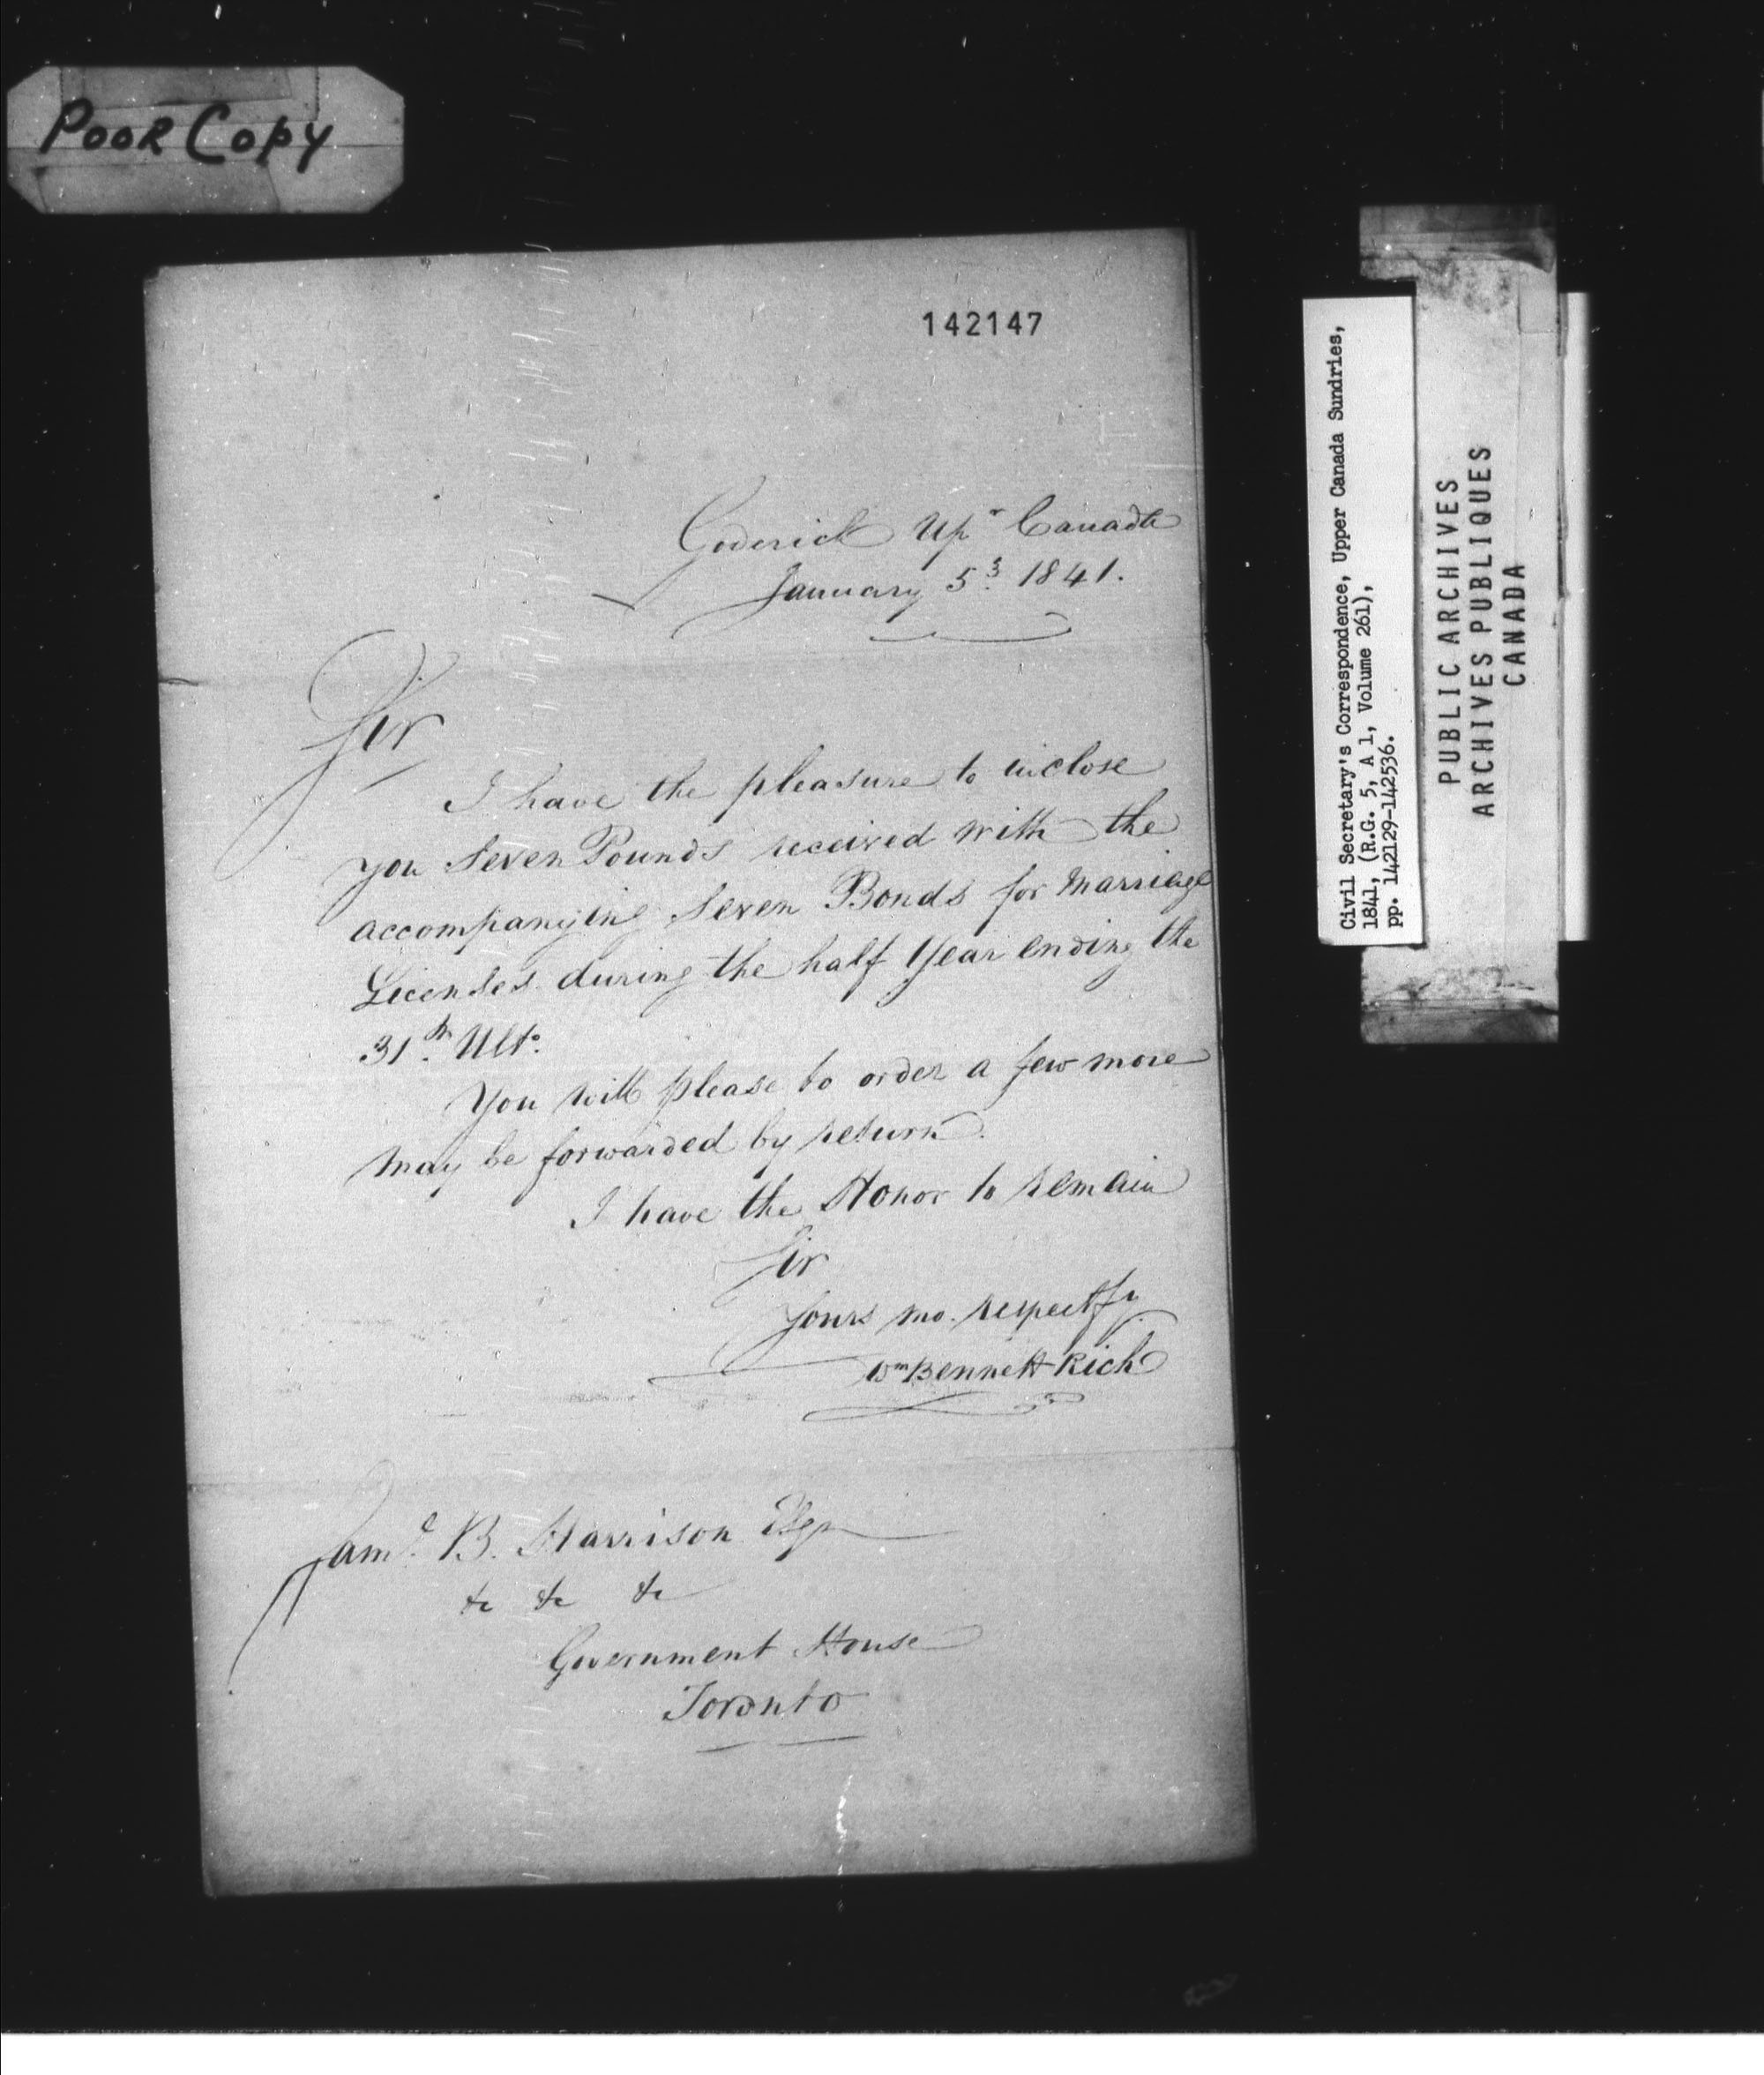 Poor Copy
142147
Goderich Upr Canada
January 5th 1841.
Sir
I have the pleasure to inclose
you Seven Pounds received with the
accompanying Seven Bonds for Marriage
Licenses during the half Year ending the
31st Ulto.
You will please to order a few more
may be forwarded by return.
I have the Honor to remain
Sir
Yours mo. respectfy
Wm Bennett Rich
Saml. B. Harrison Esqr
&c &c &c
Government House
Toronto
Civil Secretary's Correspondence, Upper Canada Sundries,
1841, (R.G. 5, A 1, Volume 261),
pp. 142129-142536.
PUBLIC ARCHIVES
ARCHIVES PUBLIQUES
CANADA